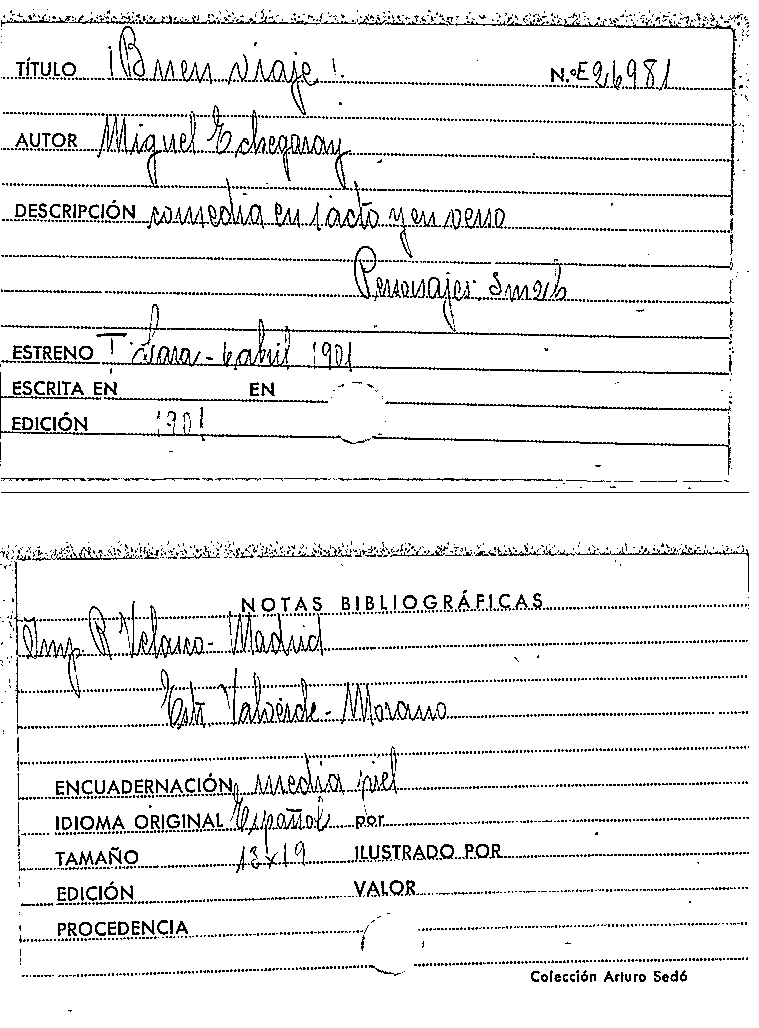 TÍTULO ¡Buen viaje! N.º E 26981
AUTOR Miguel Echegaray
DESCRIPCIÓN comedia en 1 acto y en verso
Personajes: 5m 2h
ESTRENO T. Lara - 6 abril 1901
ESCRITA EN EN
EDICIÓN 1901
NOTAS BIBLIOGRÁFICAS
Imp R Velasco - Madrid
Estr Valverde - Morano
ENCUADERNACIÓN media piel
IDIOMA ORIGINAL Español por
TAMAÑO 13x19 ILUSTRADO POR
EDICIÓN VALOR
PROCEDENCIA
Colección Arturo Sedó